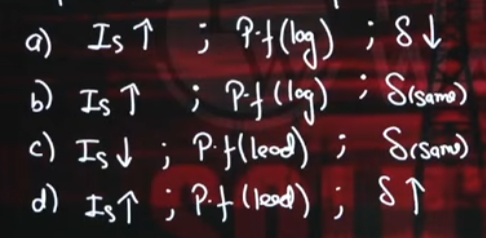 a) Is ↑ ; P.f (log) ; δ ↓
b) Is ↑ ; P.f (log) ; δ(same)
c) Is ↓ ; P.f (lead) ; δ(same)
d) Is ↑ ; P.f (lead) ; δ ↑